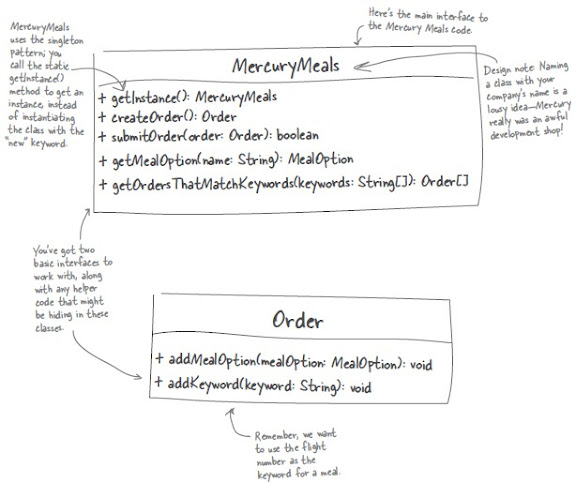 Here's the main interface to
the Mercury Meals code.
MercuryMeals
uses the singleton
pattern; you
call the static
getInstance()
method to get an
instance, instead
of instantiating
the class with the
"new" keyword.
MercuryMeals
+ getInstance(): MercuryMeals
+ createOrder(): Order
+ submitOrder(order: Order): boolean
+ getMealOption(name: String): MealOption
+ getOrdersThatMatchKeywords(keywords: String[]): Order[]
Design note: Naming
a class with your
company's name is a
lousy idea—Mercury
really was an awful
development shop!
You've got two
basic interfaces to
work with, along
with any helper
code that might
be hiding in these
classes.
Order
+ addMealOption(mealOption: MealOption): void
+ addKeyword(keyword: String): void
Remember, we want
to use the flight
number as the
keyword for a meal.